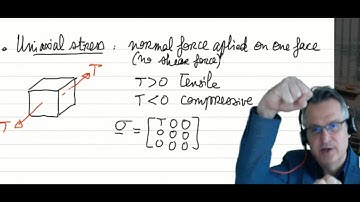 • Uniaxial stress : normal force applied on one face
(no shear force)
T
T > 0 Tensile
T < 0 compressive
T
σ = [T 0 0
0 0 0
0 0 0]